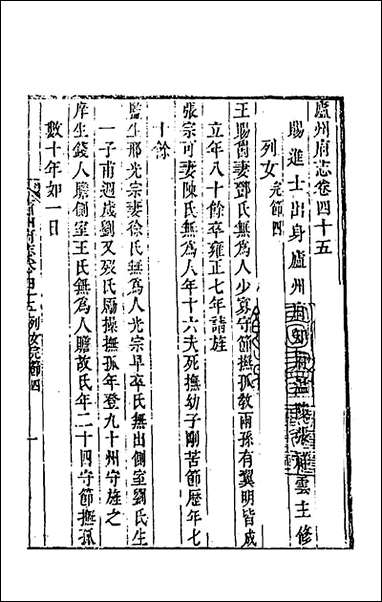 廬州府志卷四十五
賜進士出身廬州張祥雲主修
列女完節四
王賜茵妻鄧氏無為人少寡守節撫孤敎兩孫有翼明皆成
立年八十餘卒雍正七年請旌
張宗可妻陳氏無為人年十六夫死撫幼子剛苦節歴年七
十餘
監生邢光宗妻徐氏無為人光宗早卒氏無出側室劉氏生
一子甫週歲劉又歿氏勵操撫孤年登九十州守旌之
庠生錢人贍側室王氏無為人贍故氏年二十四守節撫孤
數十年如一日
列女完節四
一